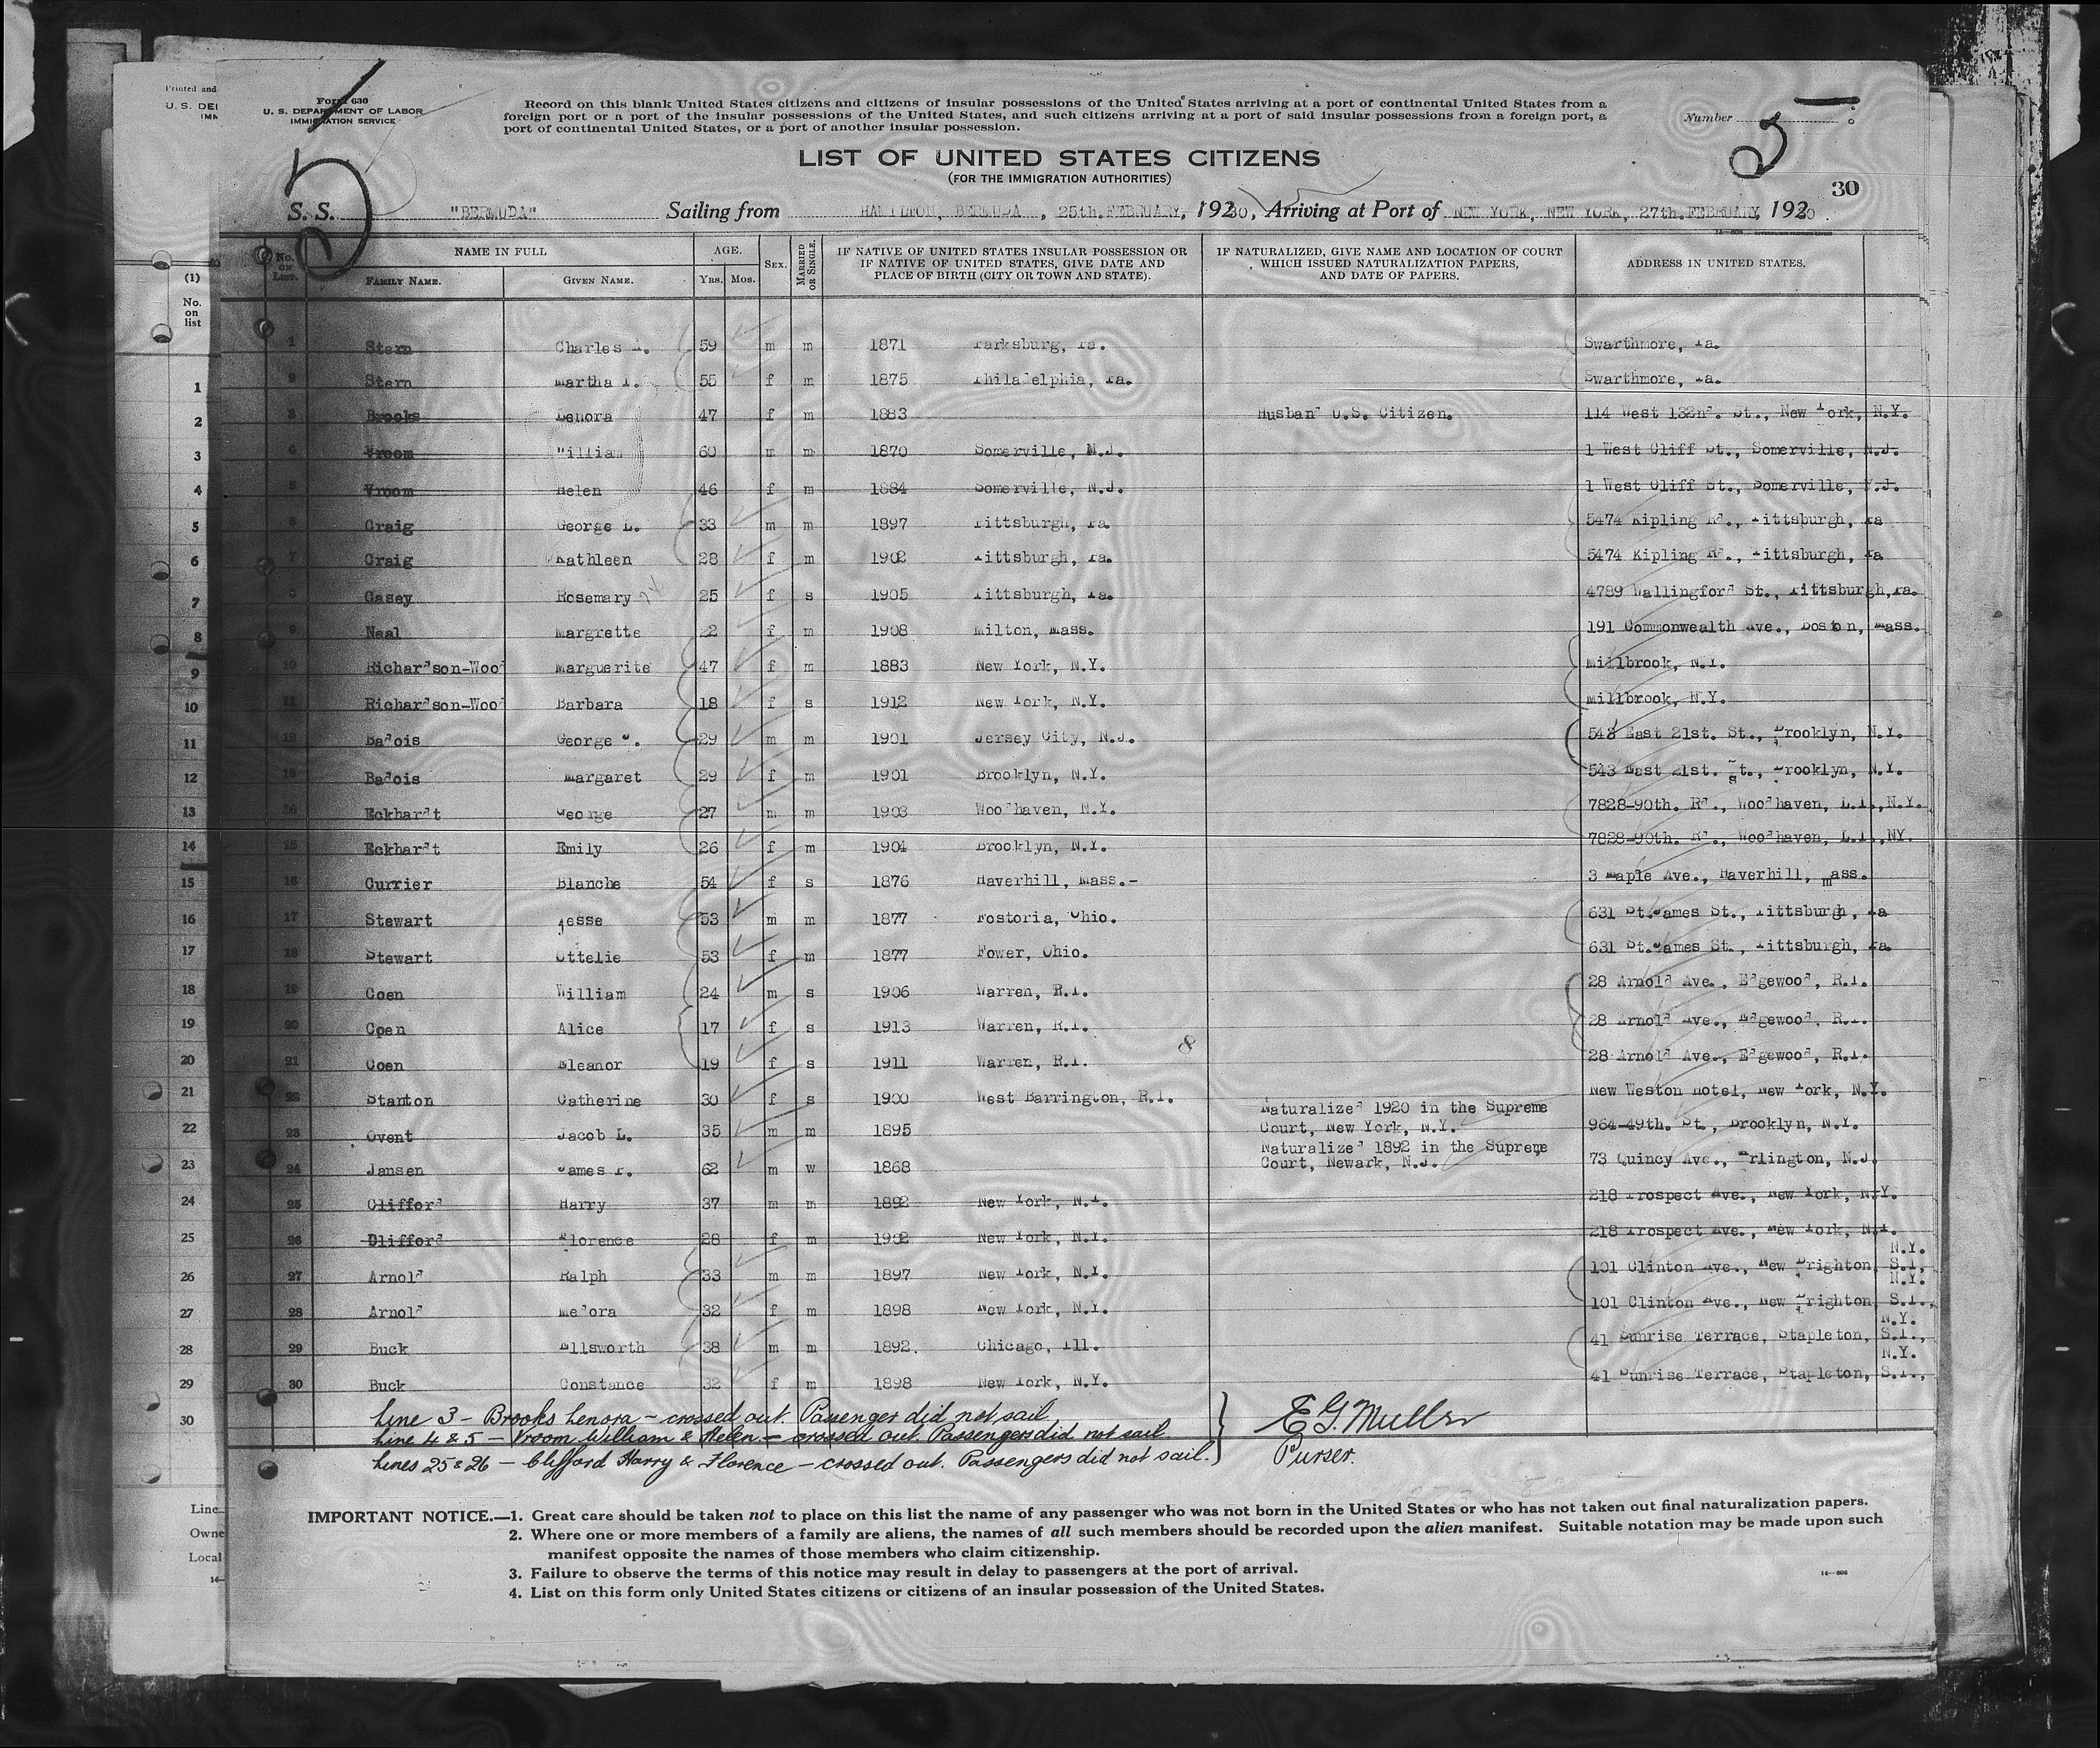 Printed and
U. S. DEI
IMM
(1)
No.
on
list
1
2
3
4
5
6
7
8
9
10
11
12
13
14
15
16
17
18
19
20
21
22
23
24
25
26
27
28
29
30
Line
Owne
Local
14—
Form 630
U. S. DEPARTMENT OF LABOR
IMMIGRATION SERVICE
Record on this blank United States citizens and citizens of insular possessions of the United States arriving at a port of continental United States from a
foreign port or a port of the insular possessions of the United States, and such citizens arriving at a port of said insular possessions from a foreign port, a
port of continental United States, or a port of another insular possession.
Number
5
LIST OF UNITED STATES CITIZENS
(FOR THE IMMIGRATION AUTHORITIES)
30
S. S. "BERMUDA" Sailing from HAMILTON, BERMUDA, 25th. FEBRUARY, 1930, Arriving at Port of NEW YORK, NEW YORK, 27th. FEBRUARY, 1930
No. on List. NAME IN FULL AGE. SEX. MARRIED OR SINGLE. IF NATIVE OF UNITED STATES INSULAR POSSESSION OR IF NATIVE OF UNITED STATES, GIVE DATE AND PLACE OF BIRTH (CITY OR TOWN AND STATE). IF NATURALIZED, GIVE NAME AND LOCATION OF COURT WHICH ISSUED NATURALIZATION PAPERS, AND DATE OF PAPERS. ADDRESS IN UNITED STATES.
FAMILY NAME. GIVEN NAME. YRS. MOS.
1 Stern Charles 59 m m 1871 Parksburg, Pa. Swarthmore, Pa.
2 Stern Martha 55 f m 1875 Philadelphia, Pa. Swarthmore, Pa.
3 Brooks Lenora 47 f m 1883 Husband U.S. Citizen. 114 West 132nd. St., New York, N.Y.
4 Vroom William 60 m m 1870 Somerville, N.J. 1 West Cliff St., Somerville, N.J.
5 Vroom Helen 46 f m 1884 Somerville, N.J. 1 West Cliff St., Somerville, N.J.
6 Craig George L. 33 m m 1897 Pittsburgh, Pa 5474 Kipling Rd., Pittsburgh, Pa
7 Craig Kathleen 28 f m 1902 Pittsburgh, Pa. 5474 Kipling Rd., Pittsburgh, Pa
8 Casey Rosemary 25 f s 1905 Pittsburgh, Pa. 4789 Wallingford St., Pittsburgh, Pa.
9 Neal Margrette 22 f m 1908 Milton, Mass. 191 Commonwealth Ave., Boston, Mass.
10 Richardson-Wood Marguerite 47 f m 1883 New York, N.Y. Millbrook, N.Y.
11 Richardson-Wood Barbara 18 f s 1912 New York, N.Y. Millbrook, N.Y.
12 Badois George J. 29 m m 1901 Jersey City, N.J. 543 East 21st. St., Brooklyn, N.Y.
13 Badois Margaret 29 f m 1901 Brooklyn, N.Y. 543 East 21st. St., Brooklyn, N.Y.
14 Eckhardt George 27 m m 1903 Woodhaven, N.Y. 7828-90th. Rd., Woodhaven, L.I., N.Y.
15 Eckhardt Emily 26 f m 1904 Brooklyn, N.Y. 7828-90th. Rd., Woodhaven, L.I., NY.
16 Currier Blanche 54 f s 1876 Haverhill, Mass.- 3 Maple Ave., Haverhill, Mass.
17 Stewart Jesse 53 m m 1877 Fostoria, Ohio. 631 St.James St., Pittsburgh, Pa
18 Stewart Ottelie 53 f m 1877 Fower, Ohio. 631 St.James St., Pittsburgh, Pa.
19 Coen William 24 m s 1906 Warren, R.I. 28 Arnold Ave., Edgewood, R.I.
20 Coen Alice 17 f s 1913 Warren, R.I. 28 Arnold Ave., Edgewood, R.I.
21 Coen Eleanor 19 f s 1911 Warren, R.I. 8 28 Arnold Ave., Edgewood, R.I.
22 Stanton Catherine 30 f s 1900 West Barrington, R.I. New Weston Hotel, New York, N.Y.
23 Ovent Jacob L. 35 m m 1895 Naturalized 1920 in the Supreme Court, New York, N.Y. 964-49th. St., Brooklyn, N.Y.
24 Jansen James F. 62 m w 1868 Naturalized 1892 in the Supreme Court, Newark, N.J. 73 Quincy Ave., Arlington, N.J.
25 Clifford Harry 37 m m 1892 New York, N.Y. 218 Prospect Ave., New York, N.Y.
26 Clifford Florence 28 f m 1902 New York, N.Y. 218 Prospect Ave., New York, N.Y.
27 Arnold Ralph 33 m m 1897 New York, N.Y. 101 Clinton Ave., New Brighton, S.I., N.Y.
28 Arnold Medora 32 f m 1898 New York, N.Y. 101 Clinton Ave., New Brighton, S.I., N.Y.
29 Buck Ellsworth 38 m m 1892. Chicago, Ill. 41 Sunrise Terrace, Stapleton, S.I., N.Y.
30 Buck Constance 32 f m 1898 New York, N.Y. 41 Sunrise Terrace, Stapleton, S.I., N.Y.
Line 3 - Brooks Lenora - crossed out. Passenger did not sail
Line 4 & 5 - Vroom William & Helen - crossed out. Passengers did not sail
Lines 25 & 26 - Clifford Harry & Florence - crossed out. Passengers did not sail.
E G. Muller
Purser.
IMPORTANT NOTICE.—1. Great care should be taken not to place on this list the name of any passenger who was not born in the United States or who has not taken out final naturalization papers.
2. Where one or more members of a family are aliens, the names of all such members should be recorded upon the alien manifest. Suitable notation may be made upon such
manifest opposite the names of those members who claim citizenship.
3. Failure to observe the terms of this notice may result in delay to passengers at the port of arrival.
4. List on this form only United States citizens or citizens of an insular possession of the United States.
14—808